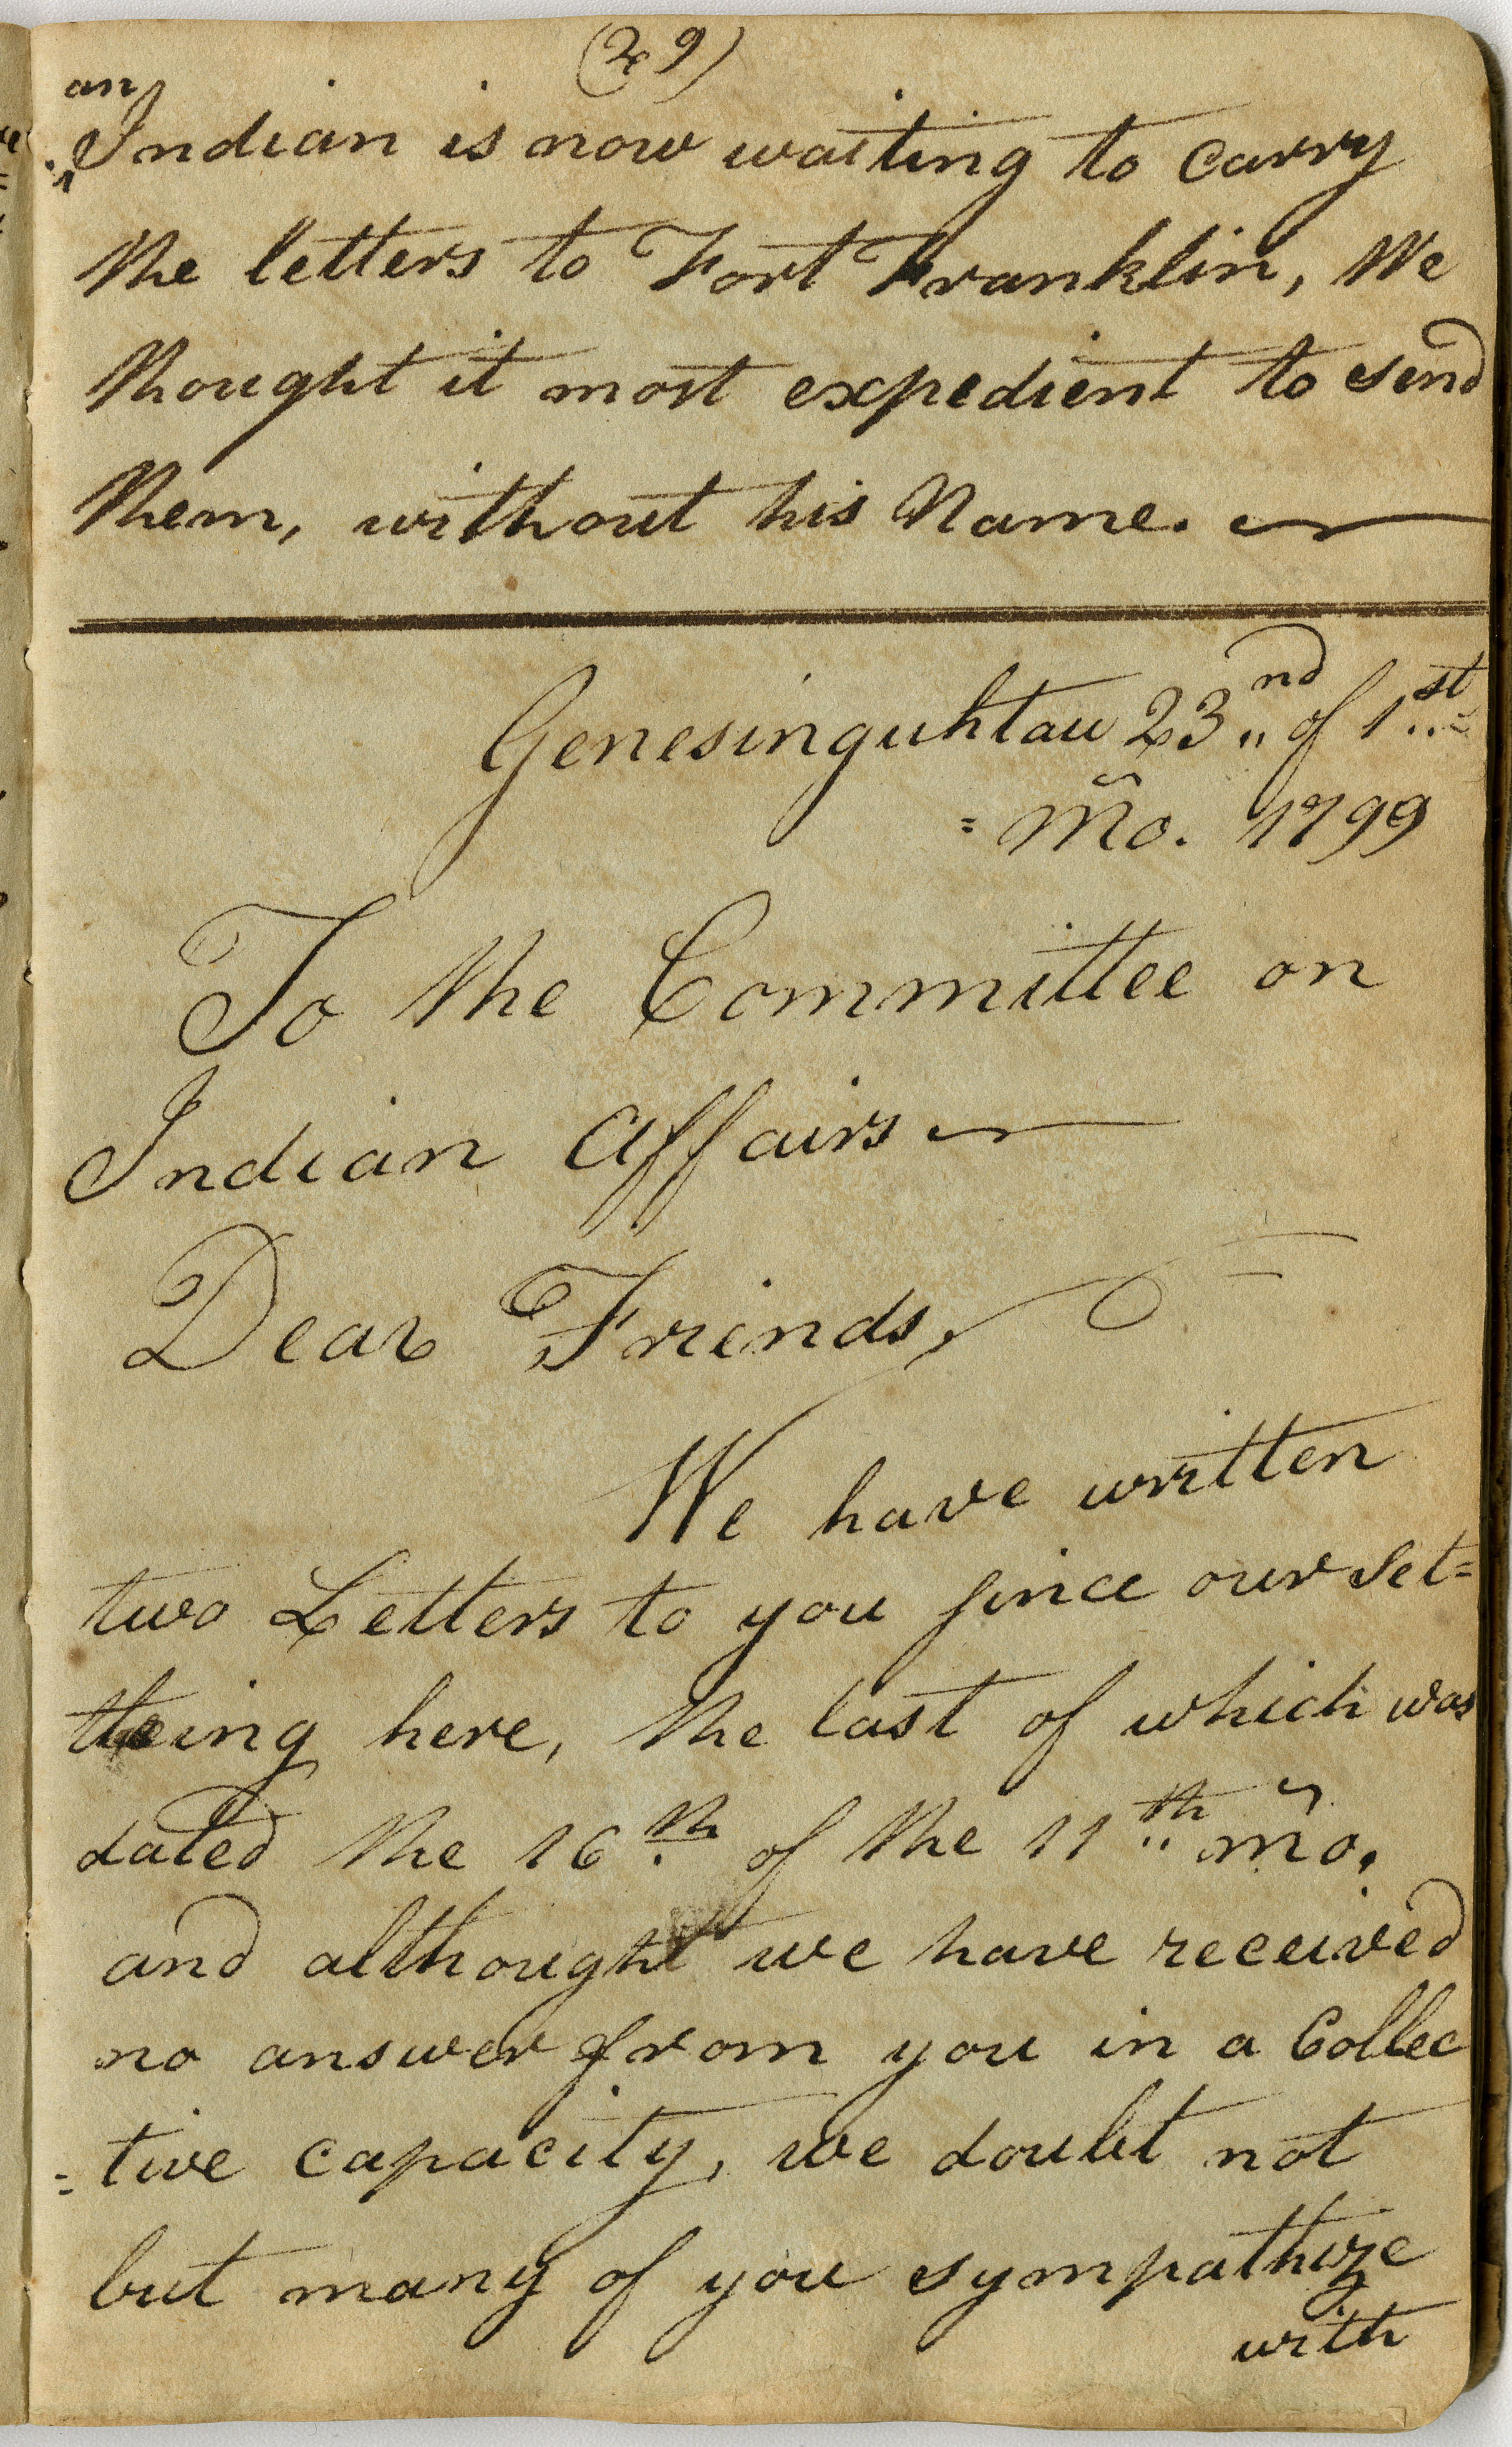 (29)
an
Indian is now waiting to carry
the letters to Fort Franklin, We
thought it most expedient to send
them, without his Name.
Genesinguhtau 23nd of 1st=
=Mo. 1799
To the Committee on
Indian Affairs
Dear Friends,
We have written
two Letters to you since our Set=
tleing here, the last of which was
dated the 16th of the 11th mo.
and althought we have received
no answer from you in a Collec
=tive capacity, we doubt not
but many of you sympathize
with